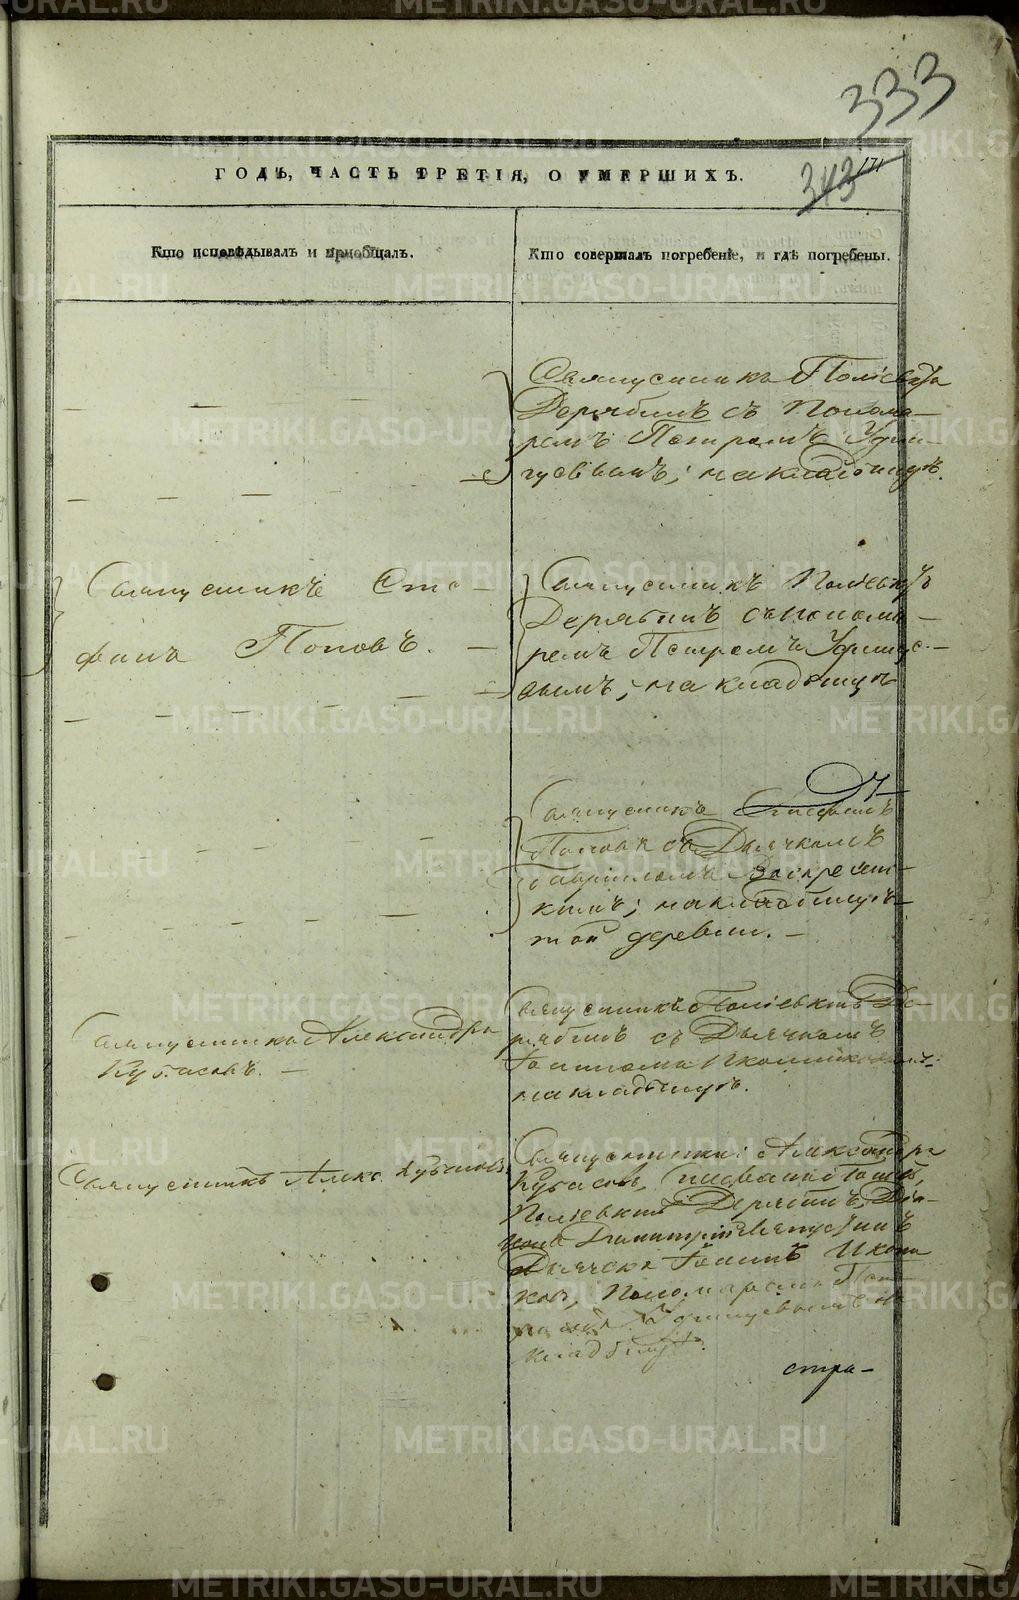 333
343
171
ГОДЪ, ЧАСТЬ ТРЕТІЯ, О УМЕРШИХЪ.
Кто исповѣдывалъ и пріобщалъ.
Кто совершалъ погребеніе, и гдѣ погребены.
Священникъ Поліевктъ
Дерябинъ съ Понома-
ремъ Петромъ
на кладбищѣ.
Священникъ Сте-
фанъ Поповъ.
Священникъ Поліевктъ
Дерябинъ съ понома-
ремъ Петромъ
вымъ; на кладбищѣ
Священникъ Стефанъ
Поповъ съ Дьячкомъ
Гавріиломъ Воскресен-
скимъ; на кладбищѣ
той деревни.
Священникъ Александръ
Кубасовъ.
Священникъ Поліевктъ Де-
рябинъ съ Дьячкомъ
Іоанномъ Иконниковымъ;
на кладбищѣ.
Священникъ Алекс. Кубасовъ
Священники: Александръ
Кубасовъ, Стефанъ Поповъ,
Поліевктъ Дерябинъ, Діа-
конъ Димитрій
Дьячекъ Іоаннъ Иконни-
ковъ, Пономарь
кладбищѣ.
стра-
METRIKI.GASO-URAL.RU